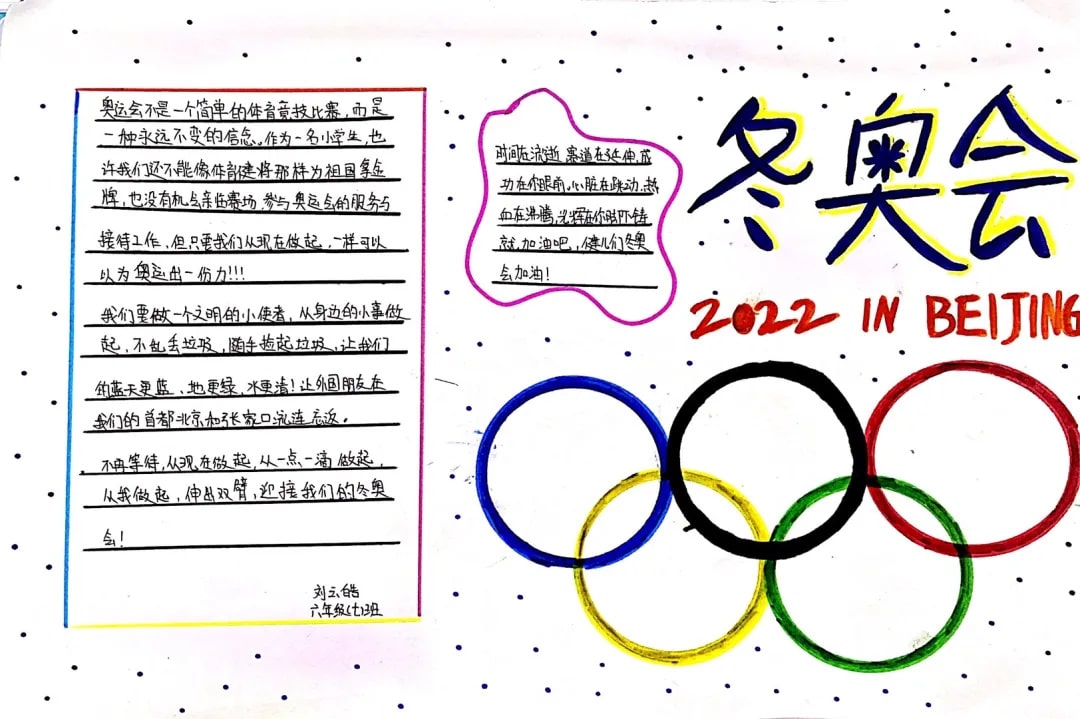 奥运会不是一个简单的体育竞技比赛，而是
一种永远不变的信念。作为一名小学生，也
许我们还不能像体育健将那样为祖国拿金
牌，也没有机会亲临赛场，参与奥运会的服务与
接待工作，但只要我们从现在做起，一样可以
以为奥运出一份力!!!
我们要做一个文明的小使者，从身边的小事做
起，不乱丢垃圾，随手捡起垃圾，让我们
的蓝天更蓝、地更绿，水更清！让外国朋友在
我们的首都北京和张家口流连忘返。
不再等待，从现在做起，从一点一滴做起，
从我做起，伸出双臂，迎接我们的冬奥
会！
刘云皓
六年级(七)班
时间在流逝，赛道在延伸，成
功在你眼前，心脏在跳动，热
血在沸腾，光辉在你脚下铸
就，加油吧，健儿们冬奥
会加油！
冬奥会
2022 IN BEIJING